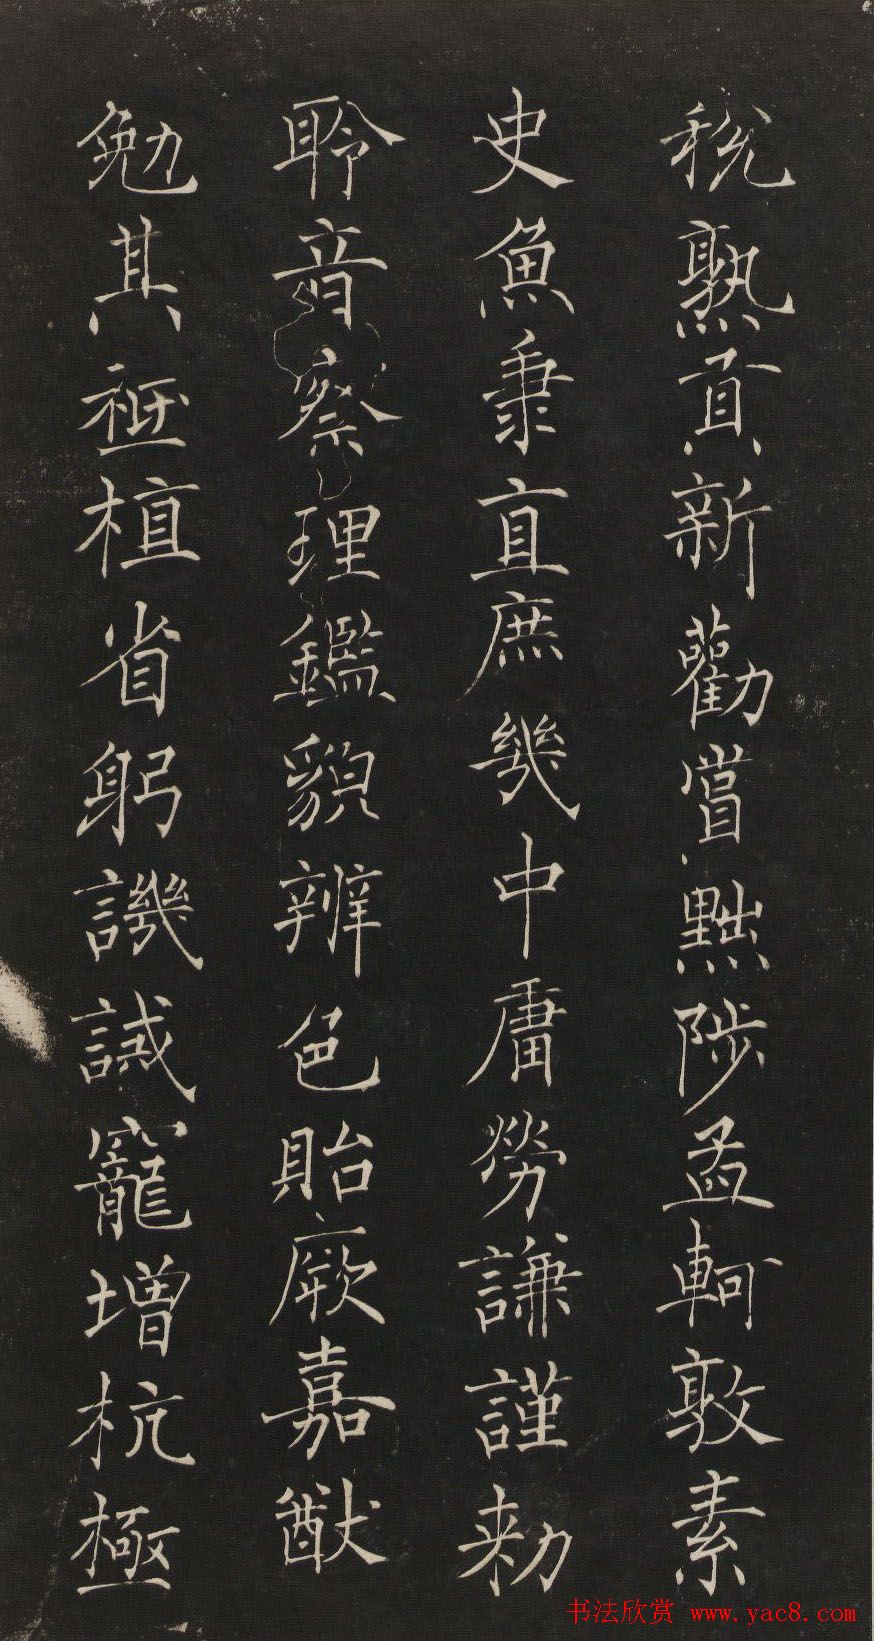 稅熟貢新勸賞黜陟孟軻敦素
史魚秉直庶幾中庸勞謙謹勑
聆音察理鑑貌辨色貽厥嘉猷
勉其祗植省躬譏誡寵增杭極
书法欣赏 www.yac8.com